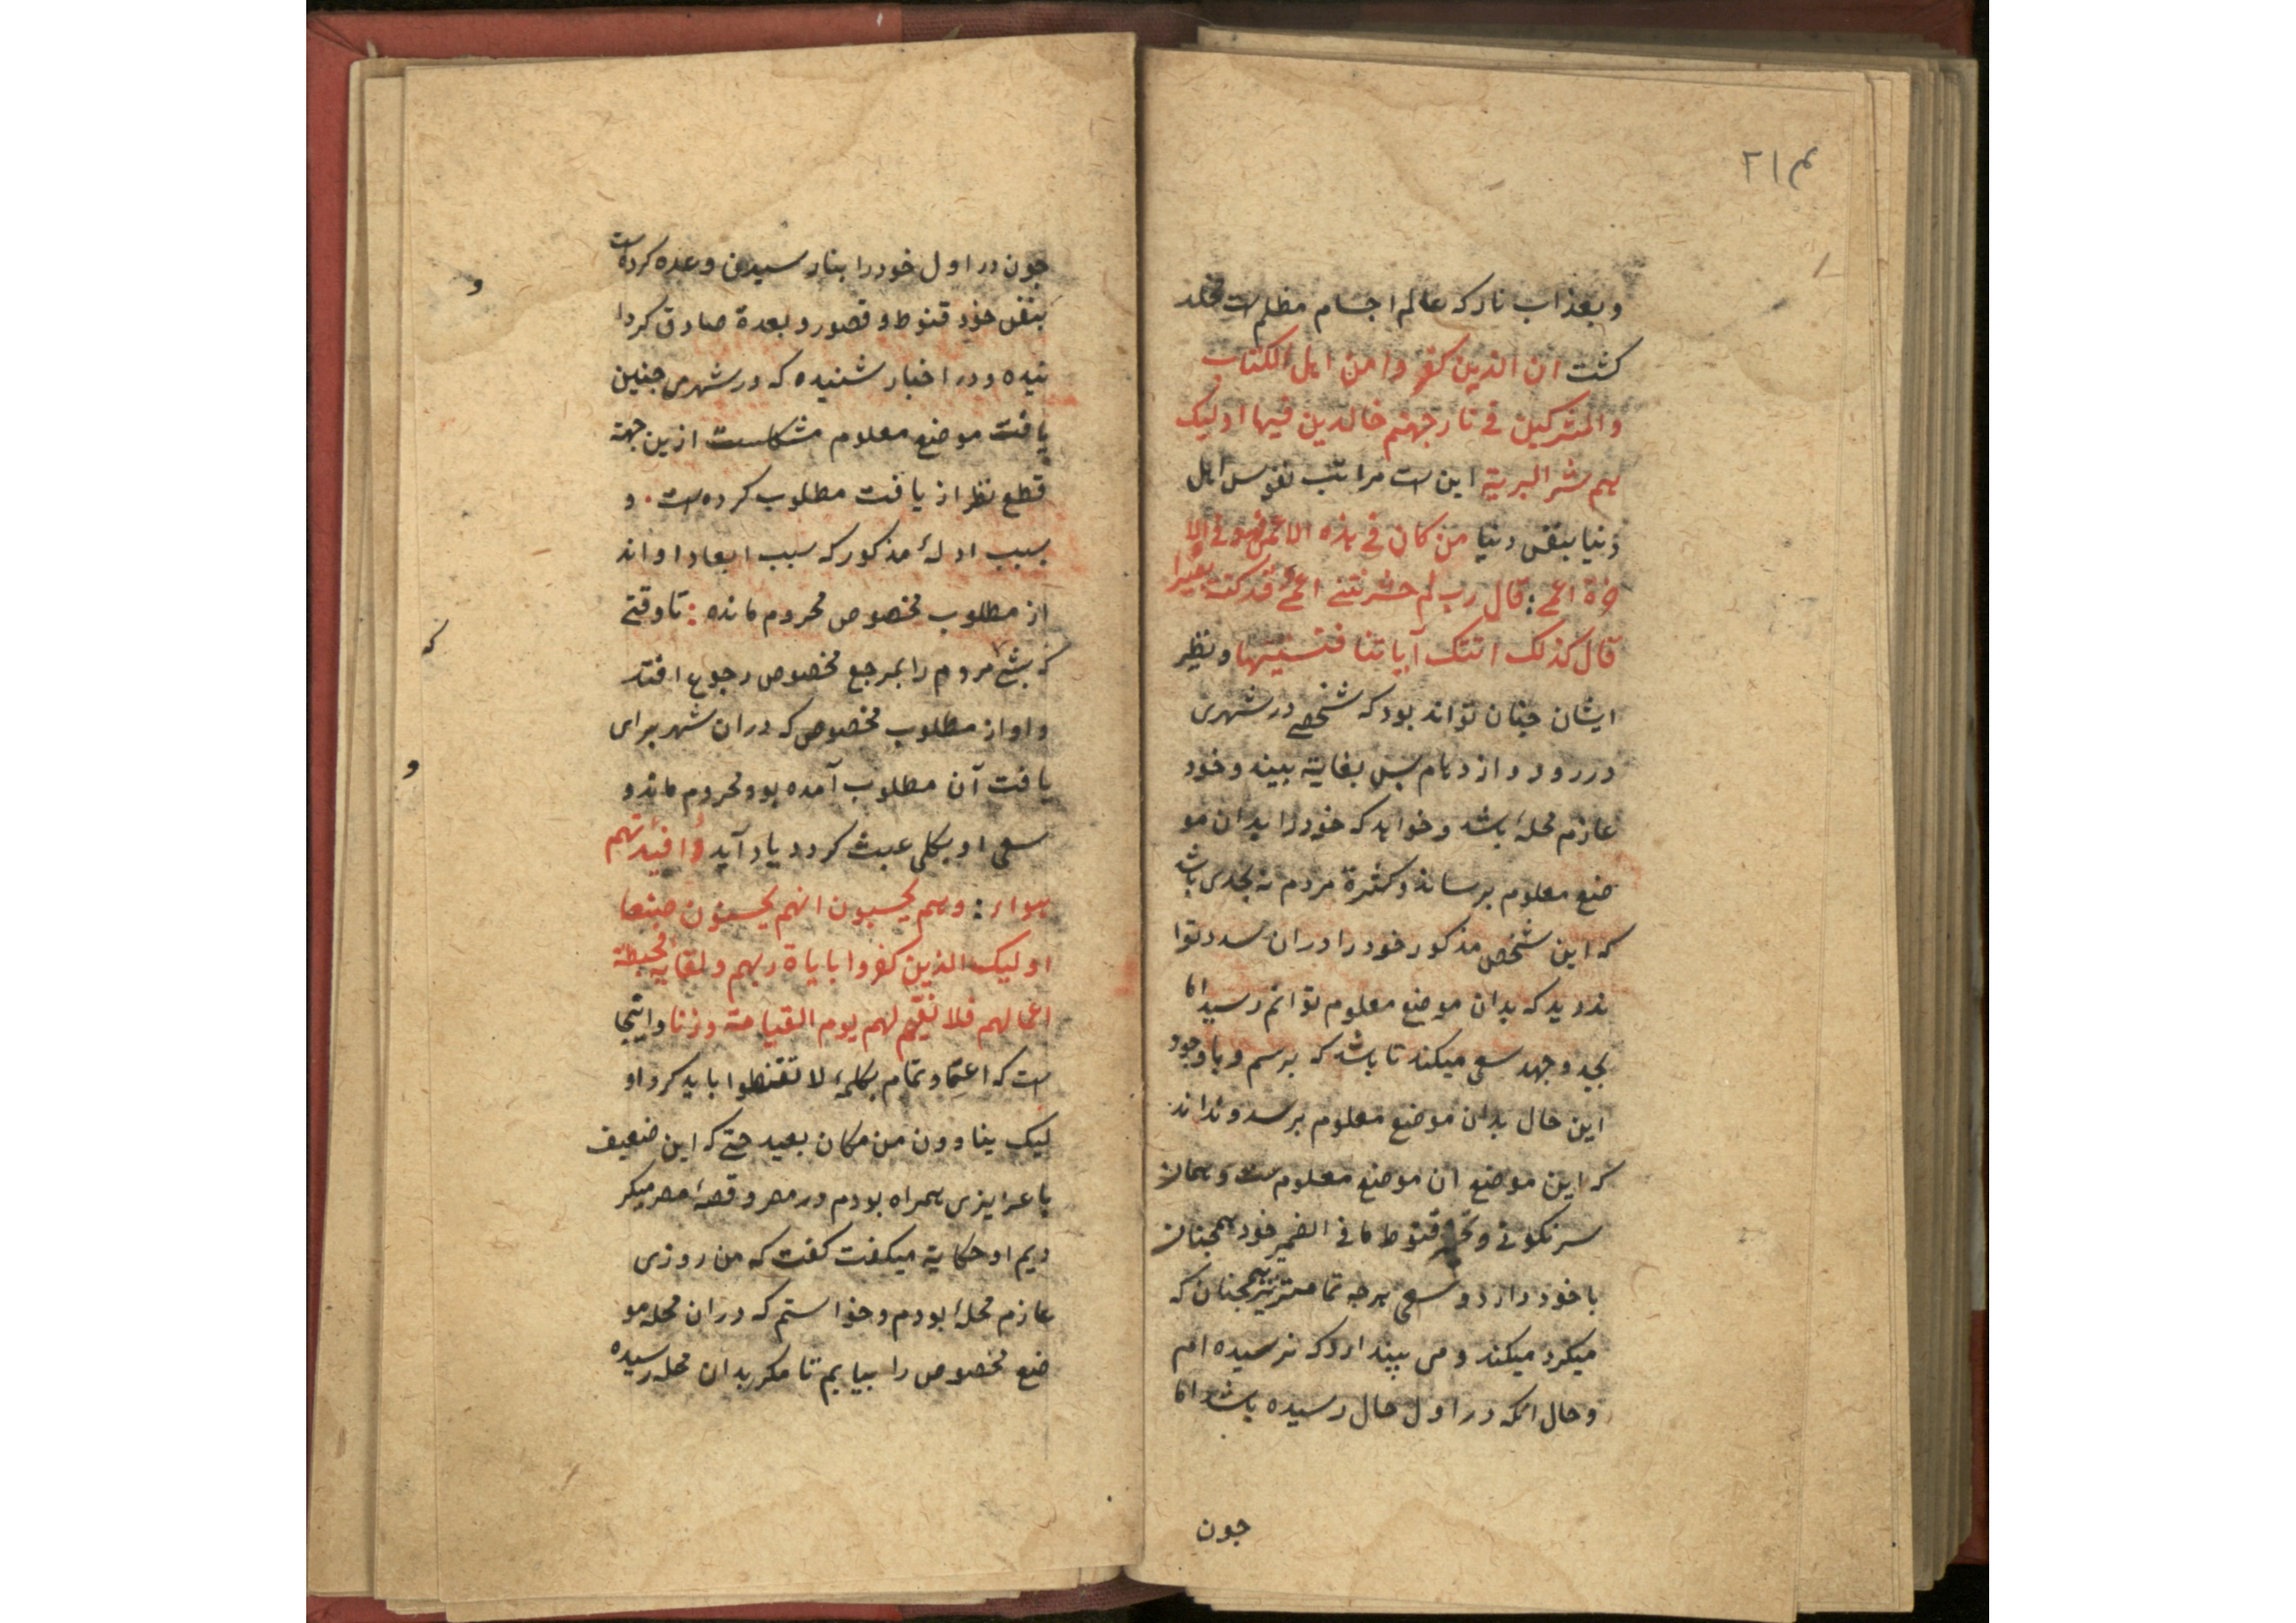 ۲۱۴
و بعذاب نار که عالم اجسام مظلم ست مخلد
کشت ان الذین کفروا من اهل الکتاب
والمشرکین فی نار جهنم خالدین فیها اولیک
هم شر البریة این ست مراتب نفوس اهل
دنیا بنقص دنیا من کان فی هذه الاعمی فهو فی الا
خرة اعمی : قال رب لم حشرتنی اعمی و قد کنت بصیرا
قال کذلک اتتک آیاتنا فنسیتها و نظیر
ایشان چنان تواند بود که شخصی در شهری
در رود و ازدحام بس بغایة بیند و خود
عازم محلهٔ باشد و خواهد که خود را بدان مو
ضع معلوم برساند و کثرة مردم نه بحدی باشد
که این شخص مذکور خود را دران سد دتوا
ند دید که بدان موضع معلوم توانم رسید اما
بجد و جهد سعی میکند تا باشد که برسم و با وجود
این حال بدان موضع معلوم برسد و نداند
که این موضع ان موضع معلوم ست و همان
سرنکونی و قنوط ما فی الضمیر خود همچنان
با خود دارد و سعی هرچه تمامتر نیز همچنان که
میکرد میکند و می پندارد که نرسیده ام
و حال انکه در اول حال رسیده باشد اما
جون
جون در اول خود را بنارسیدن وعده کرده است
بنقص خود قنوط و قصور و بعدة صادق کردا
نیده و در اخبار شنیده که در شهر می جنین
یافت موضع معلوم مشکلست ازین جهة
قطع نظر از یافت مطلوب کرده ست . و
بسبب ادلهٔ مذکور که سبب ابعاد او اند
از مطلوب مخصوص محروم مانده : تا وقتی
که بشب مردم را بمرجع مخصوص رجوع افتد
و او از مطلوب مخصوص که دران شهر برای
یافت آن مطلوب آمده بود محروم ماند و
سعی او بکلی عبث کردد یاد آید وافئدتهم
هواء : و هم یحسبون انهم یحسنون صنعا
اولیک الذین کفروا بایاة ربهم و لقایه فحبطة
اعمالهم فلا نقیم لهم یوم القیامة وزنا و اینجا
ست که اعتماد تمام بکلمهٔ لا تقنطوا باید کرد او
لیک ینادون من مکان بعید حتی که این ضعیف
با عزیزی همراه بودم در مصر و قصهٔ مصر میکر
دیم او حکایة میکفت کفت که من روزی
عازم محلهٔ بودم و خواستم که دران محله مو
ضع مخصوص را بیابم تا مکر بدان محله رسیده
و
که
و